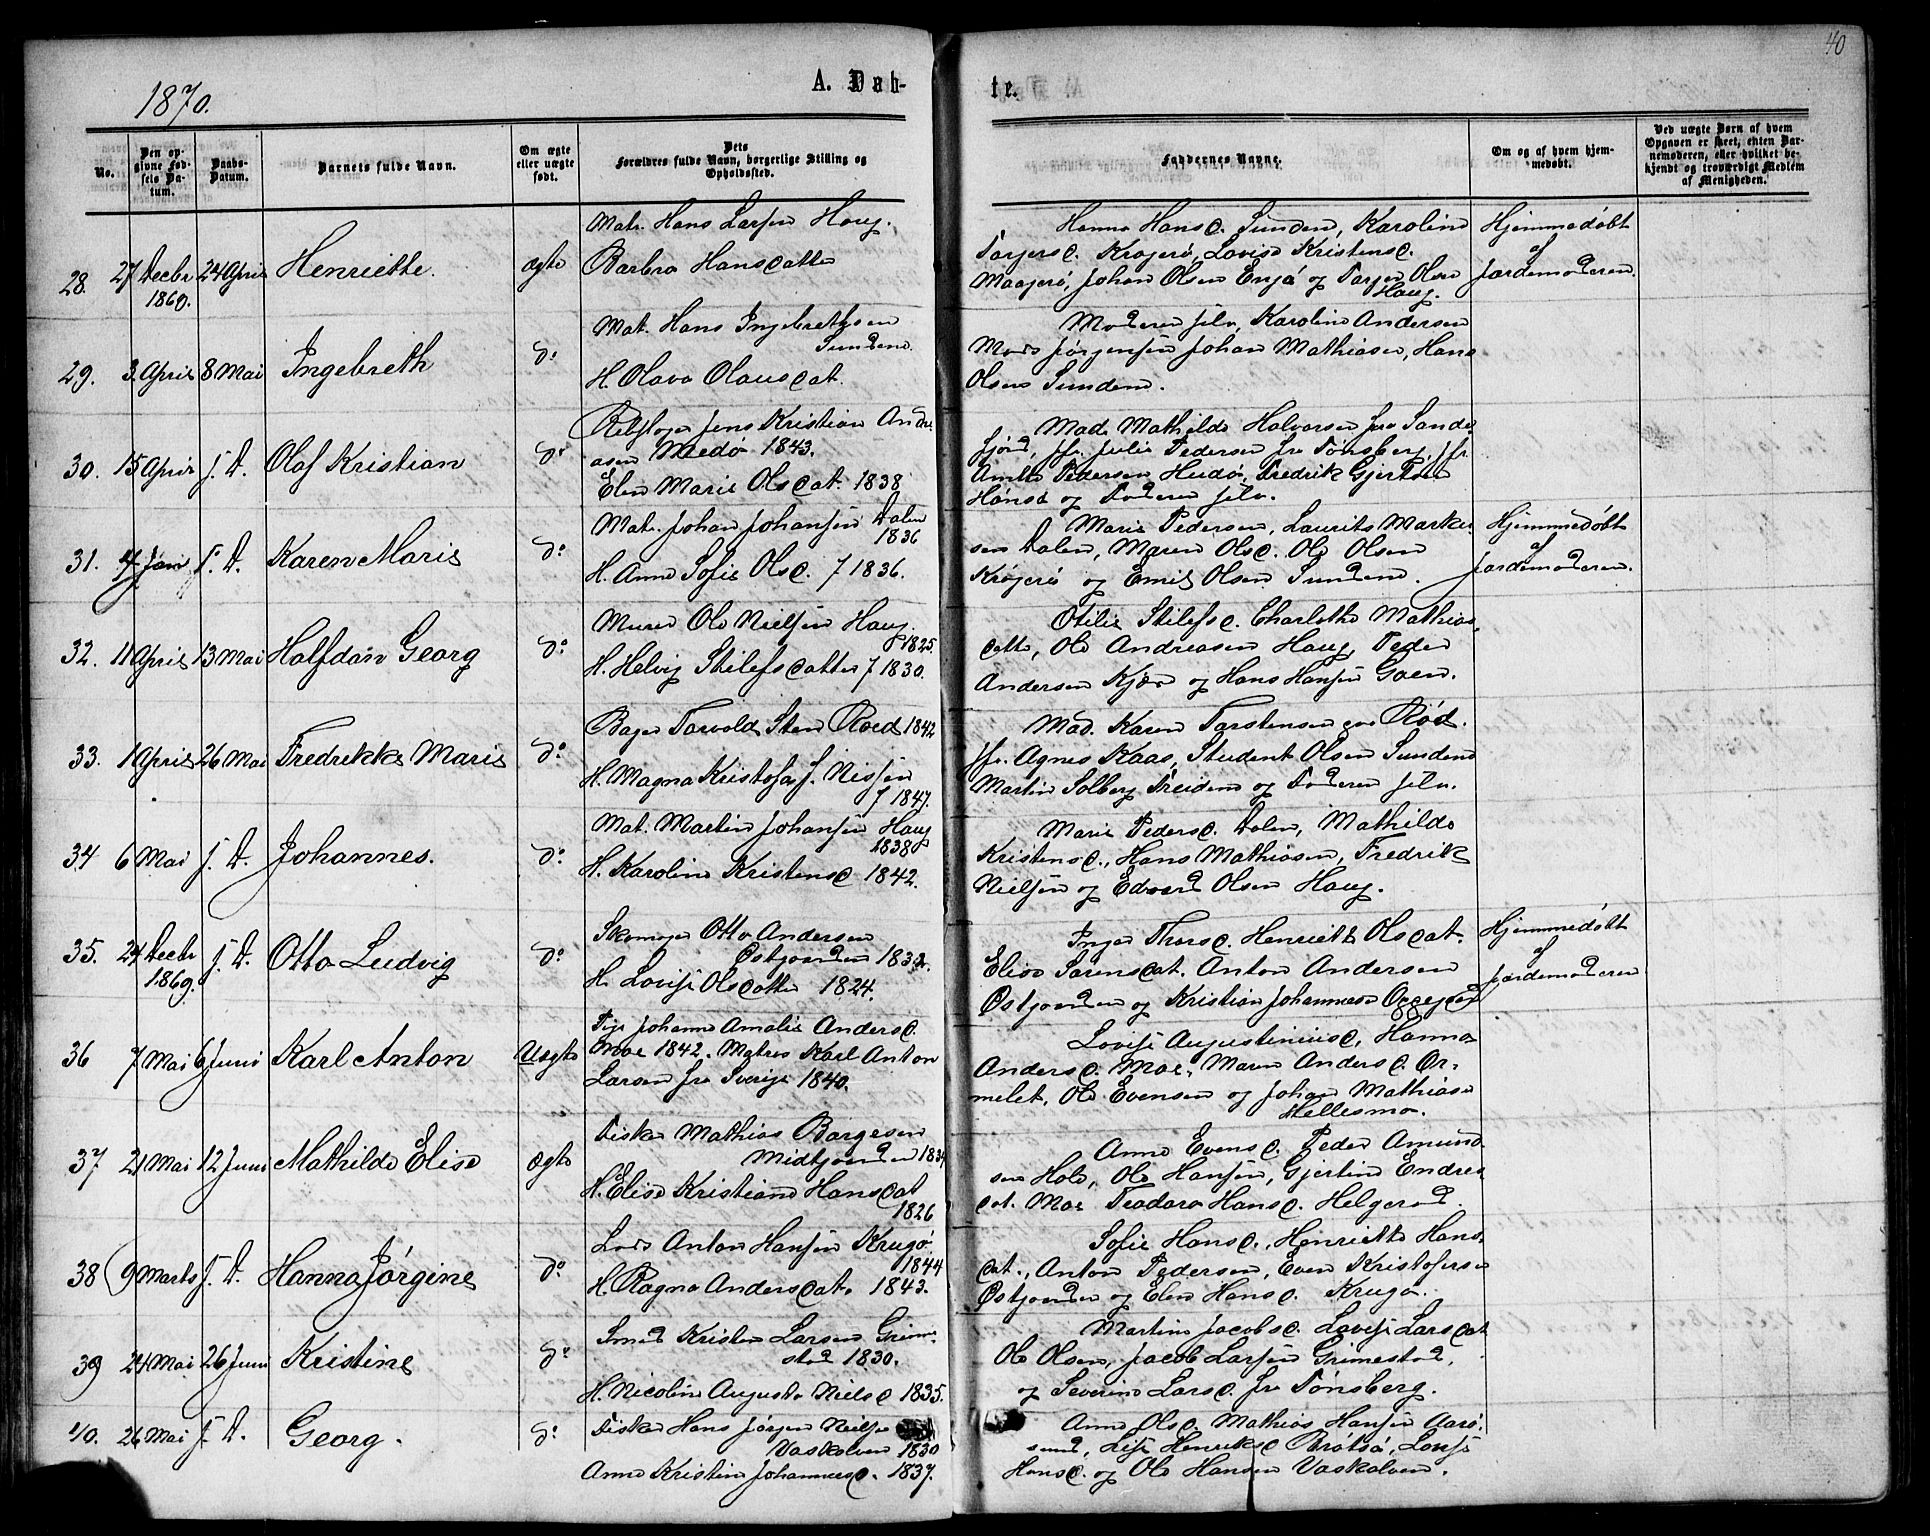 40
1870.
A. Døb-
te.
No.
Den op-
givne Fød-
sels Da-
tum.
Daabs-
Datum.
Barnets fulde Navn.
Om ægte
eller uægte
født.
Dets
Forældres fulde Navn, borgerlige Stilling og
Opholdssted.
Faddernes Navne.
Om og af hvem hjem-
medøbt.
Ved uægte Børn af hvem
Opgaven er skeet, enten Bar-
nemoderen, eller hvilket be-
kjendt og troværdigt Medlem
af Menigheden.
28. 27 Decbr 1869. 24 April Henriette. ægte
Mat. Hans Larsen Haug.
Barbro Hansdatter
Hanna Hansd. Sunden, Karoline
Torgersd. Krøgerø, Lovise Kristensd.
Maagerø, Johan Olsen Engø og Torger Olsen
Haug.
Hjemmedøbt
af
Jordemoderen.
29. 3 April 8 Mai Ingebreth do
Mat. Hans Ingebrethsen
Sundene.
H. Olava Olausdat.
Moderen selv, Karoline Andersen
Mads Jørgensen Johan Mathiasen, Hans
Olsen Sundene.
30. 15 April s. D. Olaf Kristian do
Rebslager Jens Kristian Andre-
asen Medø 1843.
Elen Marie Olsdat. 1838
Mad. Mathilde Halvorsen fra Sande-
fjord, jfr. Julie Pedersen fra Tønsberg, jfr.
Amalie Pedersen Hudø, Fredrik Gjertsen
Hønsø og Faderen selv.
31. 4 Jan s. D. Karen Marie do
Mat. Johan Johansen Dalen
1836
H. Anne Sofie Olsd. f 1836.
Marie Pedersen, Laurits Marku-
sen Dalen, Maren Olsd. Ole Olsen
Krøgerø og Emil Olsen Sundene.
Hjemmedøbt
af
Jordemoderen.
32. 11 April 13 Mai Halfdan Georg do
Murer Ole Nielsen Haug.
1825.
H. Helvig Stilefsdatter f 1830.
Otilie Stilefsd. Charlotte Mathias-
datter, Ole Andreasen Haug, Peder
Andersen Kjær og Hans Hansen Goen.
33. 1 April 26 Mai Fredrikke Marie do
Bager Torvald Sten Roed 1842
H. Magna Kristofa S. Nissen
f 1847.
Mad. Karen Torstensen Rød.
jfr. Agnes Kaas, Student Olsen Sundene
Martin Solberg Treiden og Faderen selv.
34 6 Mai s. D. Johannes. do
Mat. Martin Johansen Haug
1838
H. Karoline Kristensd 1842.
Marie Pedersd. Dalen, Mathilde
Kristensd., Hans Mathiasen, Fredrik
Nielsen og Edvard Olsen Haug.
35. 24 Decbr 1869. s. D. Otto Ludvig do
Skomager Otto Andersen
Østgaarden 1832.
H. Lovise Olsdatter 1824.
Inger Thorsd. Henriette Olsdat.
Elise Sørensdat. Anton Andersen
Østgaarden og Kristian Johannesen Oxegaard
Hjemmedøbt
af
Jordemoderen
36 7 Mai 6 Juni Karl Anton Uægte
Pige Johanne Amalie Andersd.
Moe 1842. Matros Karl Anton
Larsen fra Sverige 1840.
Lovise Augustiniusd, Hanna
Andersd. Moe, Maren Andersd. Or-
melet, Ole Evensen og Johan Mathiasen
Hellesmo.
37 21 Mai 12 Juni Mathilde Elise Ægte
Fisker Mathias Børgesen
Midtgaarden 1834
H. Elise Kristiane Hansdat
1826
Anne Evensd. Peder Amund-
sen Hole, Ole Hansen, Gjertine Endres-
dat. Moe Teodora Hansd. Helgerød.
38 9 Marts s. D. Hanna Jørgine do
Lods Anton Hansen Krugø.
1844
H. Ragna Andersdat. 1843.
Sofie Hansd., Henriette Hans-
dat., Anton Pedersen, Even Kristofersen
Østgaarden og Elen Hansd. Krugø.
39 24 Mai 26 Juni Kristine do
Smed Kristen Larsen Grime-
stad 1830.
H. Nicoline Augusta Nielsd 1835.
Martine Jacobsd. Lovise Larsdat
Ole Olsen, Jacob Larsen Grimestad,
og Severine Larsd. fra Tønsberg.
40. 26 Mai s. D. Georg. do
Fisker Hans Jørgen Nielsen
Vaskalven 1830
Anne Kristine Johannesd. 1837.
Anne Olsd. Mathias Hansen Aarø-
sund, Lise Henriksd Brøtsø, Lovise
Hansd. og Ole Hansen Vaskalven.